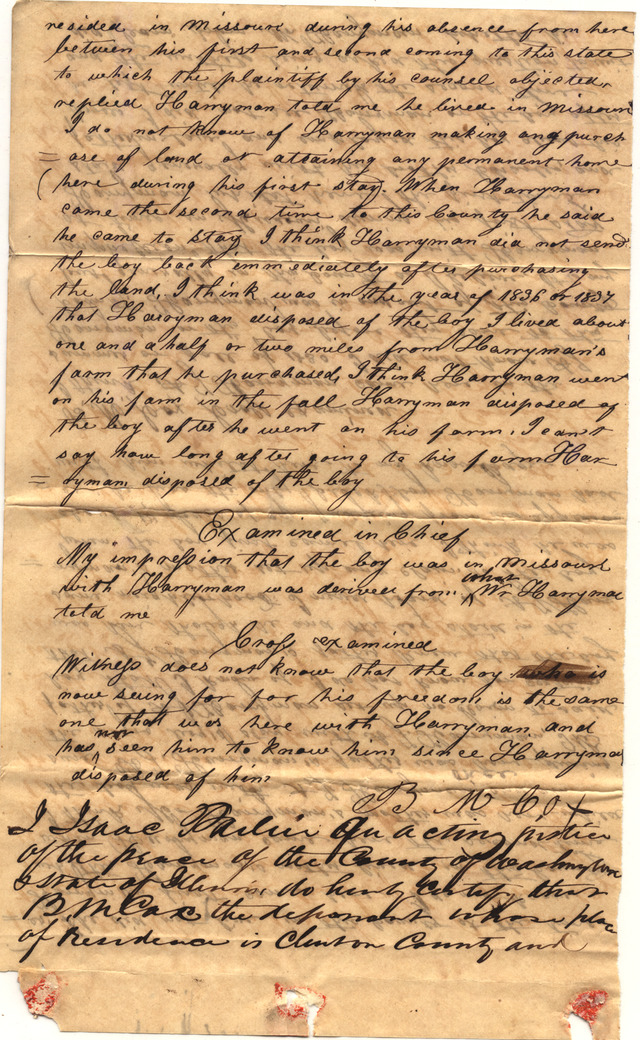 resided in Missouri during his absence from here
between his first and second coming to this state
to which the plaintiff by his counsel objected,
replied Harryman told me he lived in Missouri
I do not know of Harryman making any purch
= ase of land or attaining any permanent home
(here during his first stay. When Harryman
came the second time to this County he said
he came to stay I think Harryman did not send
the boy back immediately after purchasing
the land, I think was in the year of 1836 or 1837
that Harryman disposed of the boy I lived about
one and a half or two miles from Harryman's
farm that he purchased, I think Harryman went
on his farm in the fall Harryman disposed of
the boy after he went on his farm. I can't
say how long after going to his farm Har
= ryman disposed of the boy
Examined in Chief
My impression that the boy was in Missouri
with Harryman was derived from what Wr Harryman
told me
Cross examined
Witness does not know that the boy who is
now sueing for for his freedom is the same
one that was here with Harryman and
has not seen him to know him since Harryman
disposed of him
B M Cox
I Isaac an acting justice
of the peace of the County of Washington
& State of Illinois, do hereby certify that
B. M. Cox the deponant whose place
of Residence is Clinton County and